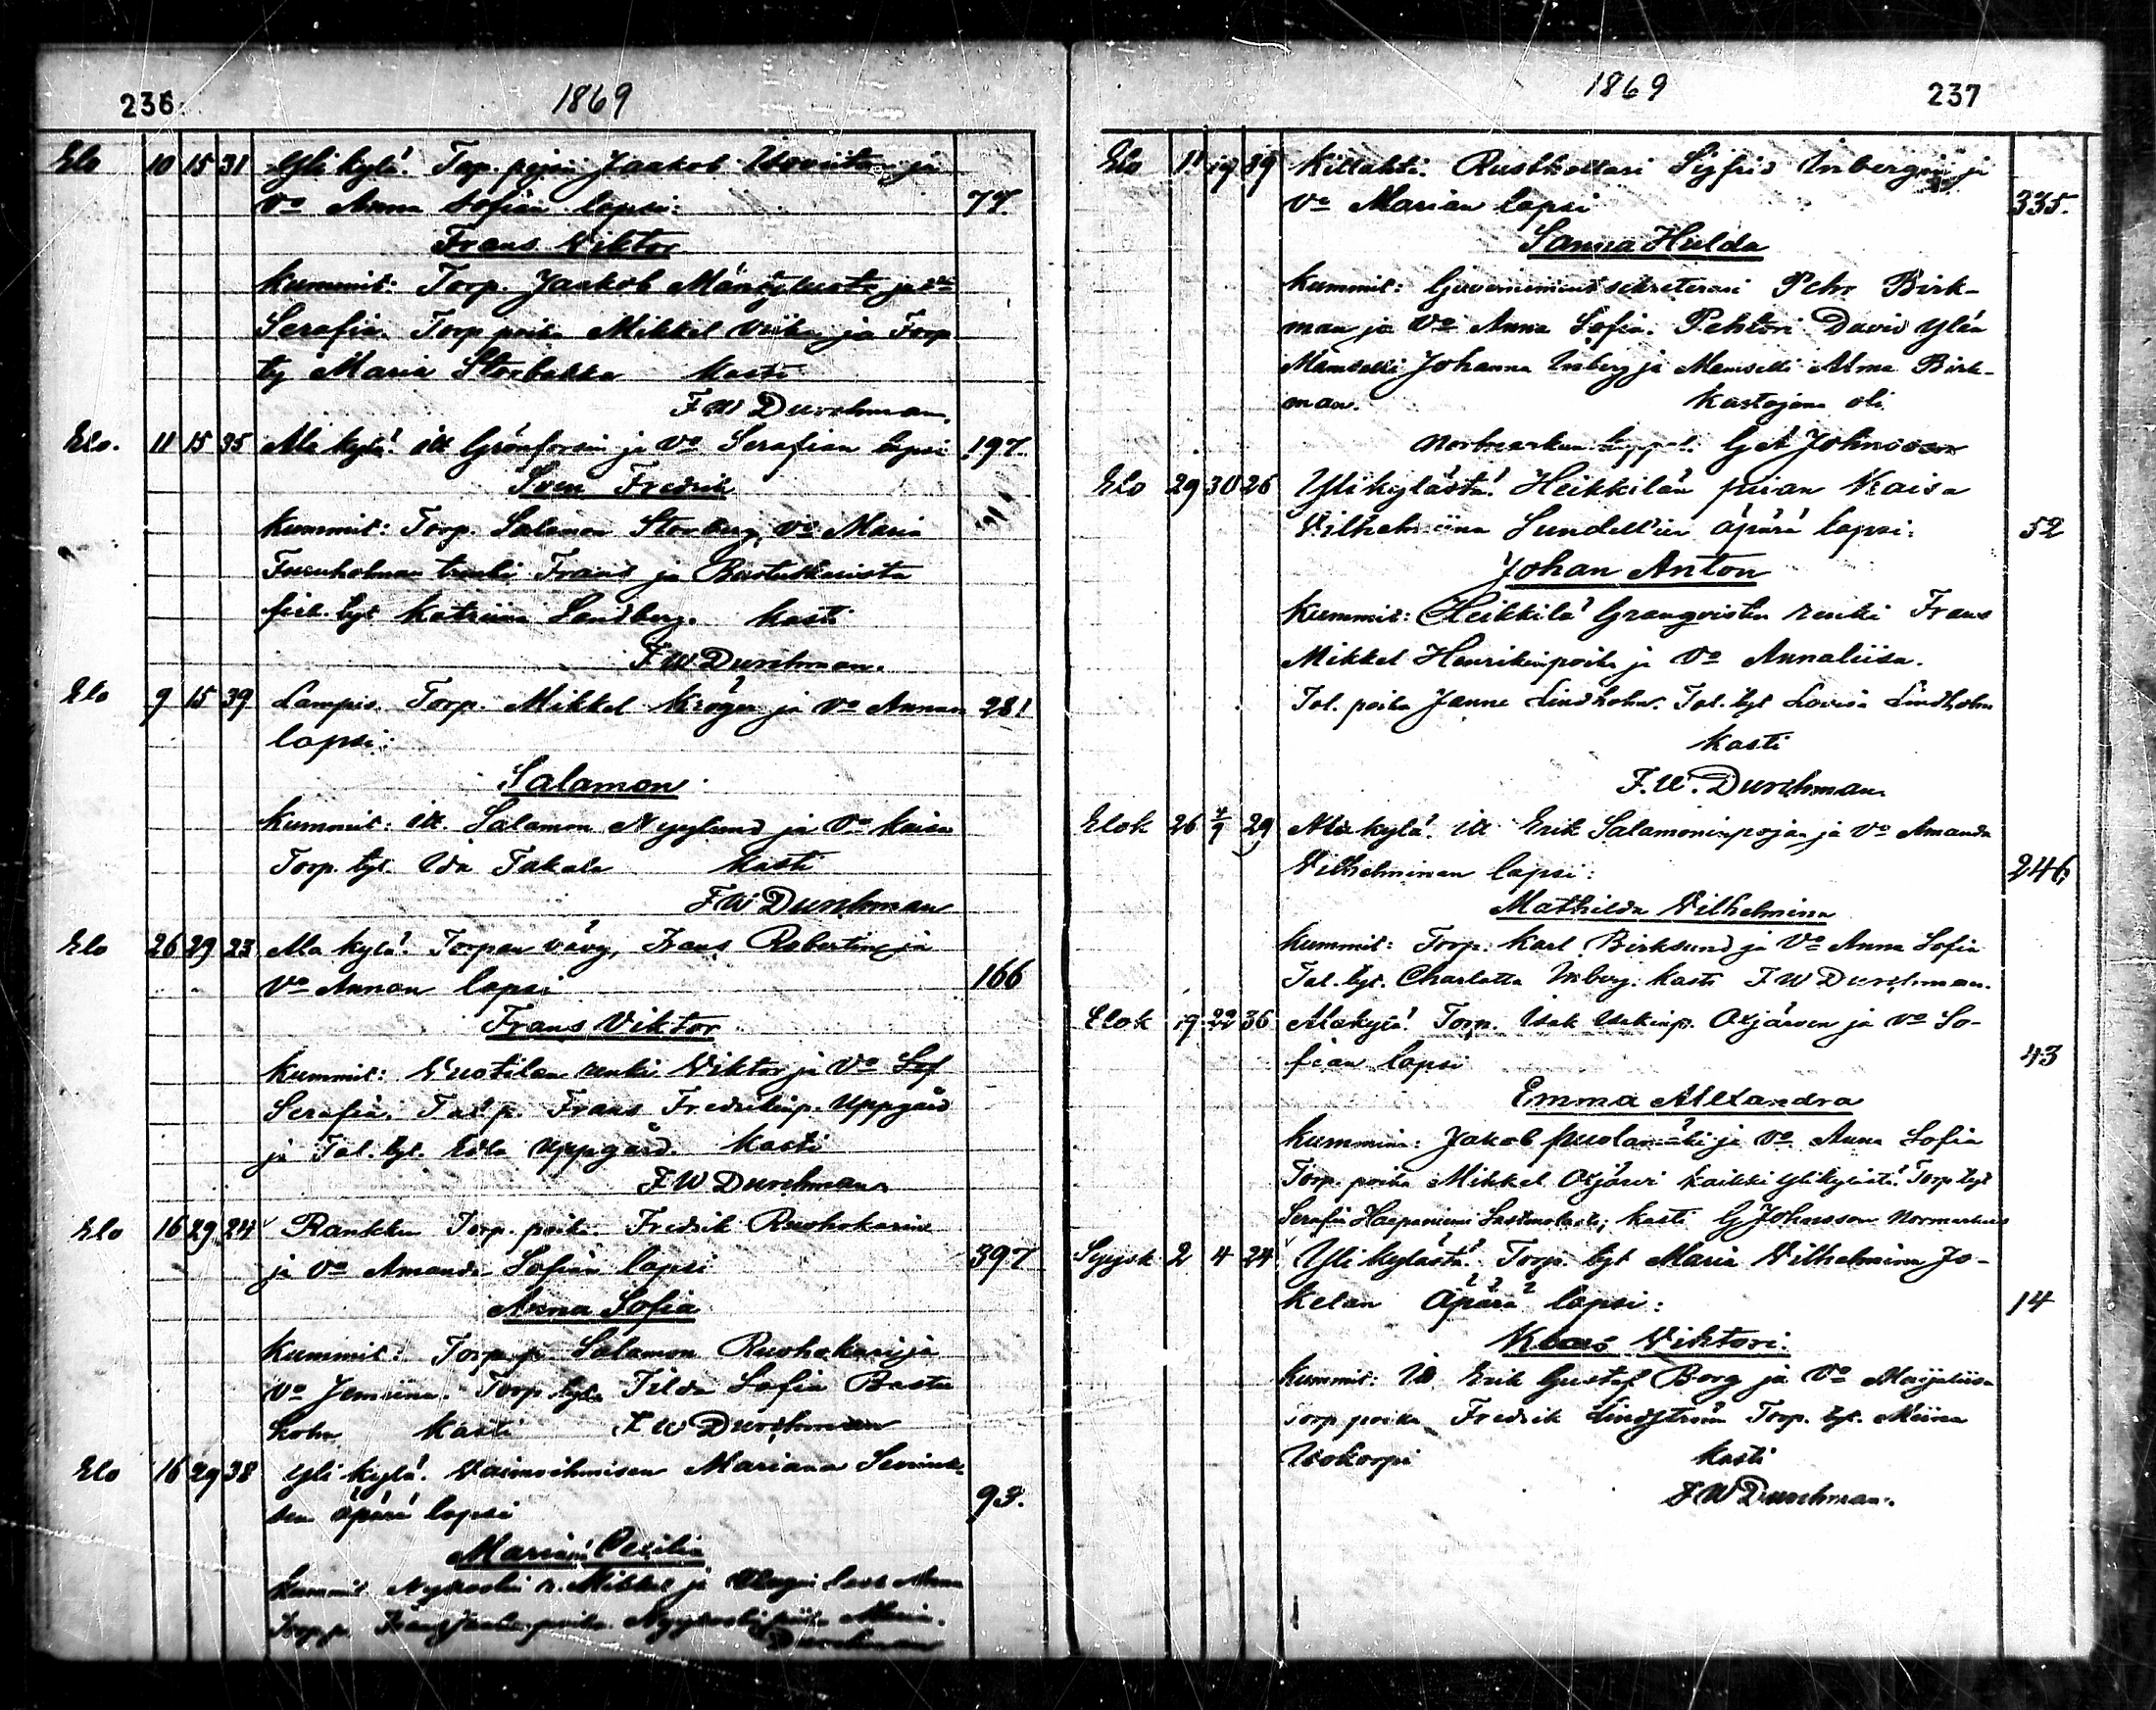 236
1869
Elo 10 15 31 Yli kylä. Torp. pojan Jaakob ja
Vo Anna Sofian lapsi: 77.
Frans Viktor
Kummit: Torp. Jaakob Mäntyluoto ja Vo
Serafia. Torp poika Mikkel ja Torp
ty Maria Storbakka Kasti
F W Durchman.
Elo. 11 15 35 Ala kylä. itt Grönforsin ja Vo Serafian lapsi 197.
Sven Fredrik
Kummit: Torp. Salamon Storberg, Vo Maria
Furuholman renki Frans ja
tyt Katriina Sandberg. Kasti
F W Durchman.
Elo 9 15 39 Lampis. Torp. Mikkel Kröger ja Vo Annan 281
lapsi:
Salamon
Kummit: itt. Salamon Nyylund ja Vo Kaisa
Torp. tyt. Ida Takala Kasti
F W Durchman
Elo 26 29 23 Ala kylä. Torpan vävy, Frans Robertin ja
Vo Annan lapsi 166
Frans Viktor
Kummit: Ruotilan renki Viktor ja Vo Sof
Serafia. Tal p. Frans Fredrikinp. Uppgård
ja Tal. tyt. Edla Uppgård. Kasti
F W Durchman.
Elo 16 29 24 Rankku Torp. poika. Fredrik Ruohokarin
ja Vo Amanda Sofian lapsi 397
Anna Sofia
Kummit: Torp. p. Salamon Ruohokari ja
Vo Torp. tyt. Tilda Sofia Bastu
Kasti F W Durchman
Elo 16 29 38 Yli kylä. Vaimoihmisen Marian
sen äpärä lapsi 93.
Maria Cecilia
Kummit r. Mikkel ja Anna
Torp. p. Frans Maria.
Durchman
1869
237
Elo 11 19 39 Kittahti. Rusthollari Sigfrid Inbergin ja
Vo Marian lapsi 335.
Sanna Hulda
Kummit: Guvernimentsekreterari Pehr Birk-
man ja Vo Anna Sofia. Pehtori David Ylén
Mamselli Johanna Inberg ja Mamselli Alma Birk-
man. Kastajana oli
Norrmarkun kappal. G A Johnsson
Elo 29 30 26 Yli kylästä. Heikkilän piian Kaisa
Vilhelmiina Sundell'in äpärä lapsi: 52
Johan Anton
Kummit: Heikkilä Granqvistin renki Frans
Mikkel Henrikinpoika ja Vo Annaliisa.
Tal. poika Janne Lindholm. Tal. tyt Lovisa Lindholm
Kasti
F. W. Durchman.
Elok 26 4/9 29 Ala kylä. itt Erik Salamoninpojan ja Vo Amanda
Vilhelminan lapsi: 246
Mathilda Vilhelmina
Kummit: Torp. Karl Birksund ja Vo Anna Sofia
Tal. tyt. Charlotta Inberg. Kasti F W Durchman.
Elok 19 22 36 Alakylä. Torp. Isak Isakinp. Oxjärven ja Vo So-
fian lapsi 43
Emma Allexandra
Kummina: Jakob Puolamäki ja Vo Anna Sofia
Torp. poika Mikkel Oxjärvi kaikki ylikylästä. Torp tyt
Serafia Haapaniemi kasti G Johnsson Normarkus
Syysk 2 4 24 Yli kylästä. Torp. tyt Maria Vilhelmina Jo-
kelan äpärä lapsi: 14
Klaas Viktori.
Kummit: Itt Erik Gustaf Borg ja Vo Maijaliisa
Torp poika Fredrik Lindström Torp. tyt. Miina
Isokorpi Kasti
F W Durchman.